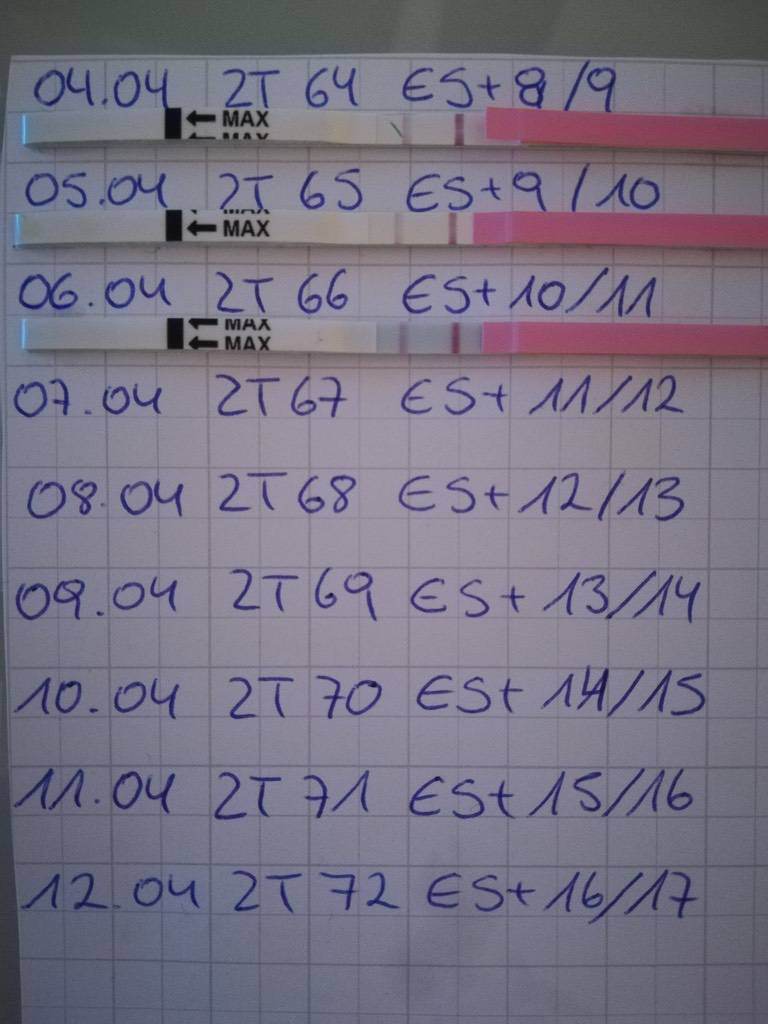 04.04 ZT 64 ES+8/9
← MAX
← MAX
05.04 ZT 65 ES+9/10
MAX
← MAX
06.04 ZT 66 ES+10/11
← MAX
← MAX
07.04 ZT 67 ES+ 11/12
08.04 ZT 68 ES+12/13
09.04 ZT 69 ES+13/14
10.04 ZT 70 ES+ 14/15
11.04 ZT 71 ES+15/16
12.04 ZT 72 ES+16/17